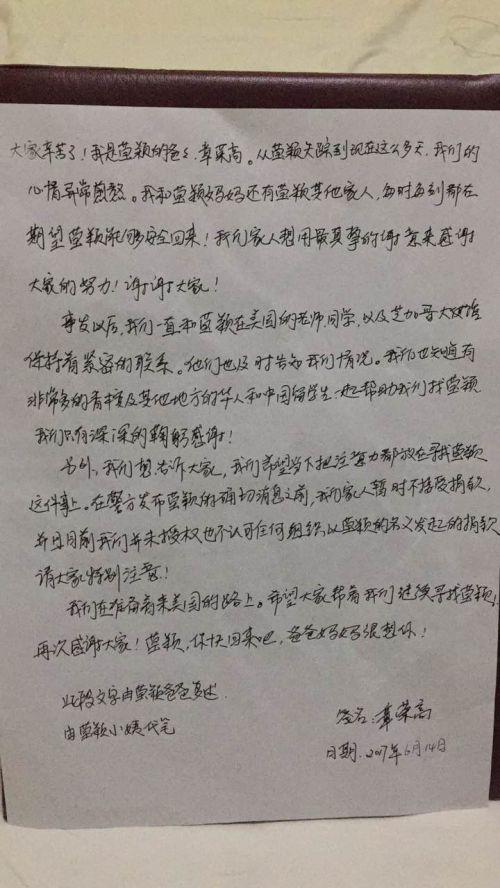 大家辛苦了！我是莹颖的爸爸，章荣高。从莹颖失踪到现在这么多天，我们的
心情异常感愁。我和莹颖妈妈还有莹颖其他家人，每时每刻都在
期望莹颖能够安全回来！我们家人想用最真挚的谢意来感谢
大家的努力！谢谢大家！
事发以后，我们一直和莹颖在美国的老师同学，以及芝加哥大使馆
保持着紧密的联系。他们也及时告知我们情况。我们也知道有
非常多的香槟及其他地方的华人和中国留学生一起帮助我们找莹颖
我们只有深深的鞠躬感谢！
另外，我们想告诉大家，我们希望当下把注意力都放在寻找莹颖
这件事上。在警方发布莹颖的确切消息之前，我们家人暂时不接受捐款，
并且目前我们并未授权也不认可任何组织以莹颖的名义发起的捐款
请大家特别注意！
我们在准备着来美国的路上。希望大家帮着我们继续寻找莹颖！
再次感谢大家！莹颖，你快回来吧，爸爸妈妈很想你！
此段文字由莹颖爸爸口述
由莹颖小姨代笔
签名：章荣高
日期：2017年6月14日